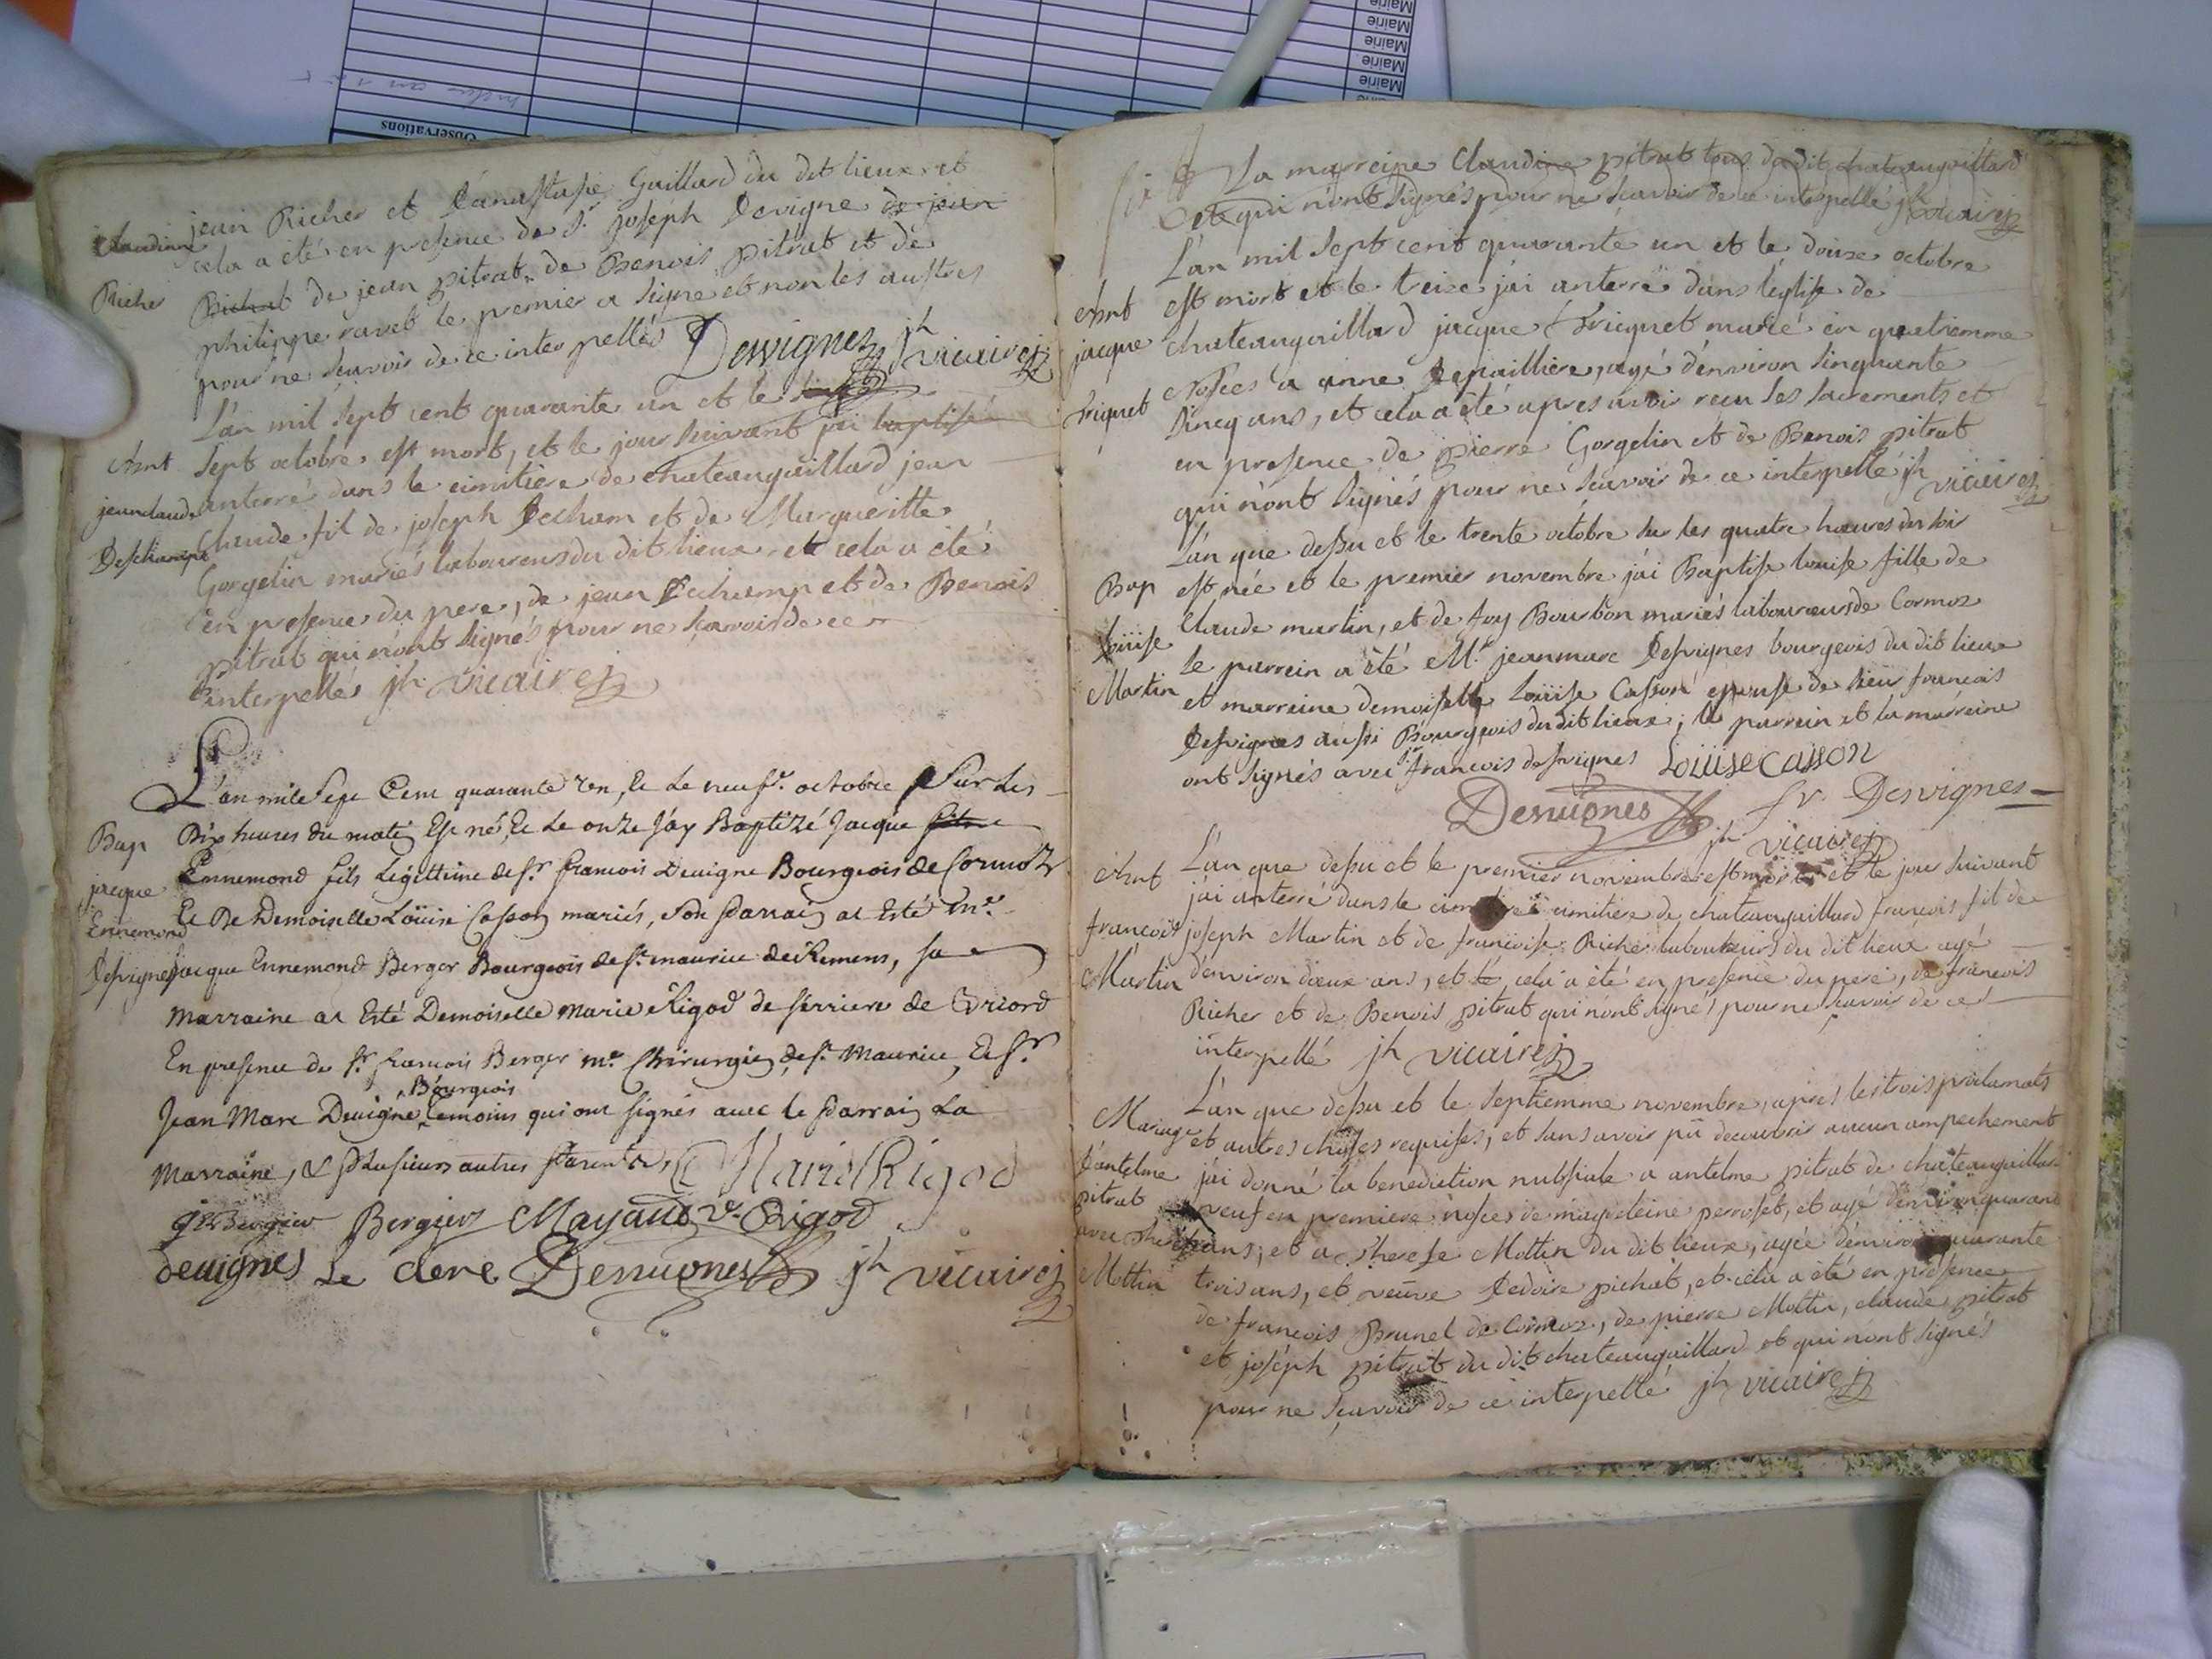 Observations
Mairie
Mairie
Mairie
Mairie
Mairie
Claudine
Richer
jean Richer et d'anastasie Gaillard du dit lieux et
cela a été en presence de Sr joseph Devigne de jean
Pichat de jean pitrat de Benois pitrat et de
philippe ravet le premier a signe et non les austres
pour ne scavoir de ce interpellés Desvignes jh vicaire
L'an mil sept cent quarante un et le
Ant
jeanclaude
Deschamps
sept octobre est mort, et le jour suivant j'ai baptisé
anterré dans le cimitiere de chateaugaillard jean
Claude fil de joseph Decham et de Marguéritte
Gorgelin mariés laboureurs du dit lieux et cela a été
en presence du pere, de jean Dechamp et de Benois
pitrat qui n'ont signés pour ne scavoir de ce
interpellés jh vicaire
Bap
jacque
Ennemond
Desvignes
L'an mile sept Cent quarante un, Et Le neufe octobre Sur Les
Dix heures du matin Est né, Et Le onze jáy Baptizé Jacque
Ennemond fils Legittime de sr francois Devigne Bourgeois de Cormoz
Et De Demoiselle Loüise Casson mariés, son Parrain at Esté Mr
Jacque Ennemond Berger Bourgeois de st maurice de Remens, sa
Marraine at Esté Demoiselle Marie Rigod de serriere de Briord
En presence de sr francois Berger me Chirurgien de st Maurice, Et sr
Bourgeois
Jean Marc Devigne temoins qui ont signés avec le Parrain La
Marraine, & Plusieurs autres Parents, Marie Rigod
Bergier Mayaud ve Rigod
devignes Le clerc Desvignes jh vicaire
La marreine Claudine pitrat tous du dit chateaugaillard
et qui n'ont signés pour ne scavoir de ce interpellé jh vicaire
Ant
jacque
triquet
L'an mil sept cent quarante un et le douze octobre
est mort et le treize j'ai anterré dans l'eglise de
chateaugaillard jacque triquet marié en quatriemme
nosces a anne Depailliere, agé d'environ sinquante
sincq ans, et cela a été apres avoir recu les sacrements et
en presence de pierre Gorgelin et de Benois pitrat
qui n'ont signés pour ne scavoir de ce interpellé jh vicaire
Bap
Loüise
Martin
L'an que dessu et le trente octobre sur les quatre heures du soir
est née et le premier novembre j'ai Baptise louise fille de
Claude martin, et de foy Bourbon mariés laboureurs de Cormoz
le parrein a été Mr jeanmarc Desvignes bourgeois du dit lieux
et marreine demoiselle Loüise Casson epouse de sieur francois
Desvignes aussi Bourgeois du dit lieux, le parrein et la marreine
ont signés avec sr francois desvignes Loüise casson
Desvignes fr Desvignes
jh vicaire
Ant
francois
Martin
L'an que dessu et le premier novembre est mort et le jour suivant
j'ai anterré dans le cimitiere de chateaugaillard francois fil de
joseph Martin et de francoise Richer laboureurs du dit lieux agé
d'environ deux ans, et cela a été en presence du pere, de francois
Richer et de Benois pitrat qui n'ont signés pour ne scavoir de ce
interpellé jh vicaire
Mariage
d'antelme
pitrat
avec therese
Mottin
L'an que dessu et le septiemme novembre, apres les trois proclamats
et autres choses requises, et sans avoir pû decouvrir aucun ampechement
j'ai donné la benediction nubsiale a antelme pitrat de chateaugaillard
veuf en premiere nosces de magdeleine perroset, et agé d'environ quarante
ans, et a therese Mottin du dit lieux, agée d'environ quarante
trois ans, et veuve Dedoire pichat, et cela a été en presence
de francois Brunel de Cormoz, de pierre Mottin, claude pitrat
et joseph pitrat du dit chateaugaillard et qui n'ont signés
pour ne scavoir de ce interpellé jh vicaire